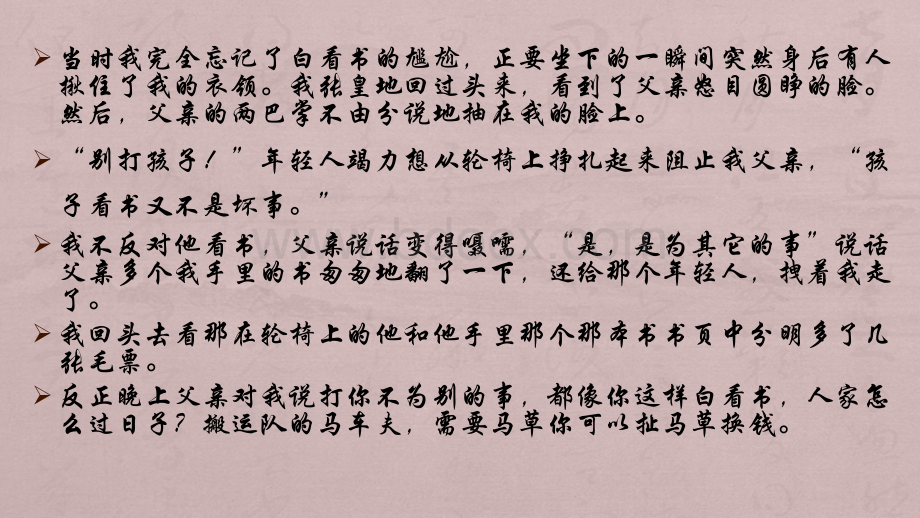 当时我完全忘记了白看书的尴尬，正要坐下的一瞬间突然身后有人
揪住了我的衣领。我张皇地回过头来，看到了父亲怒目圆睁的脸。
然后，父亲的两巴掌不由分说地抽在我的脸上。
“别打孩子！”年轻人竭力想从轮椅上挣扎起来阻止我父亲，“孩
子看书又不是坏事。”
我不反对他看书 父亲说话变得嗫嚅，“是，是为其它的事”说话
父亲多个我手里的书匆匆地翻了一下，还给那个年轻人，拽着我走
了。
我回头去看那在轮椅上的他和他手里那个那本书书页中分明多了几
张毛票。
反正晚上父亲对我说打你不为别的事，都像你这样白看书，人家怎
么过日子？搬运队的马车夫，需要马草你可以扯马草换钱。